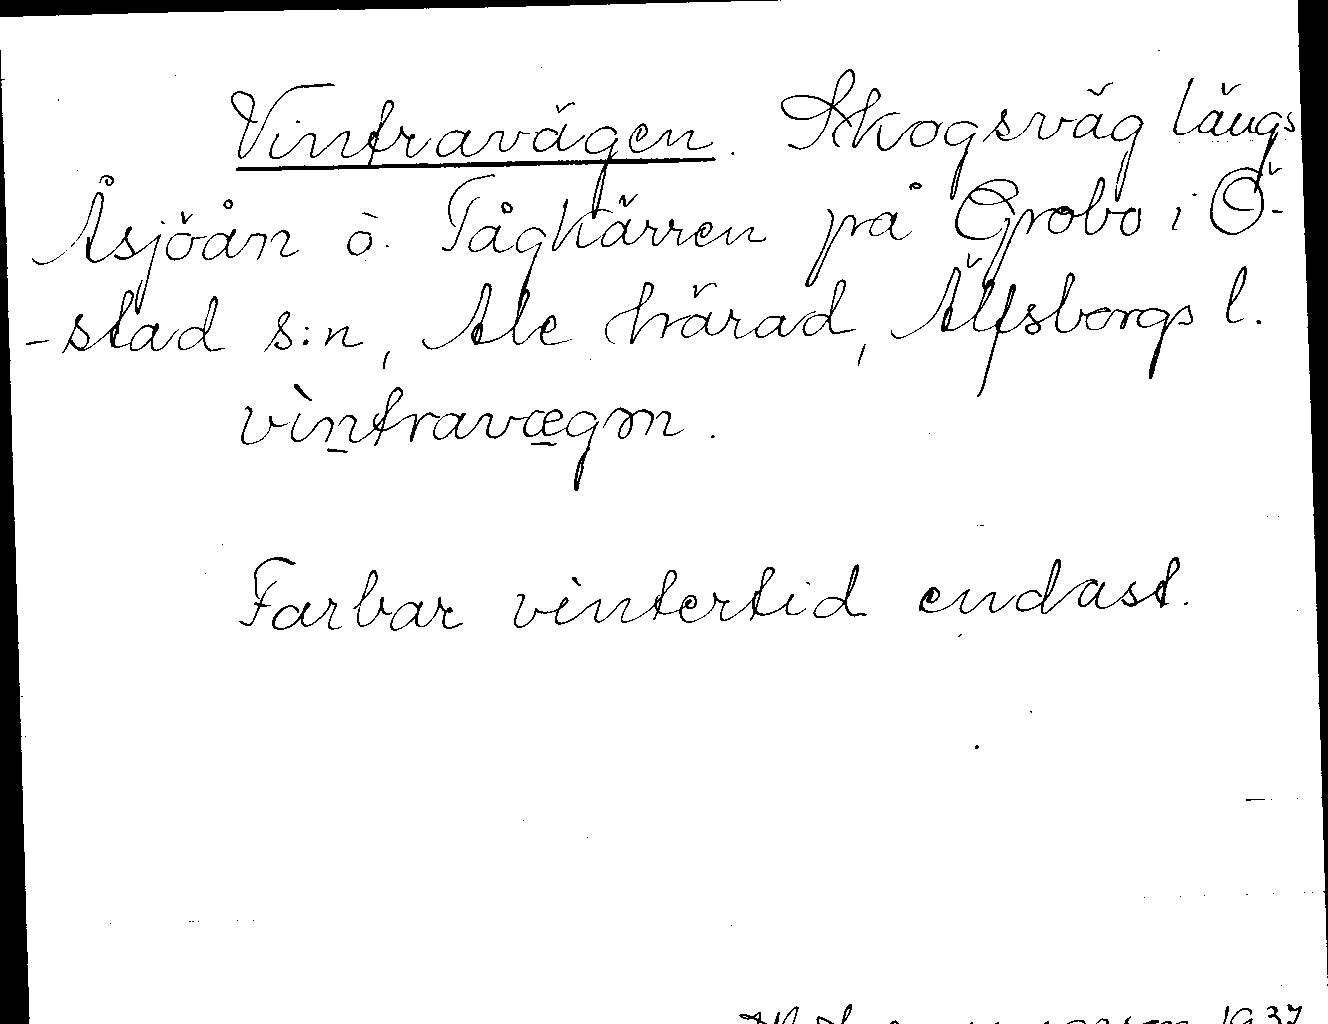 Vintravägen. Skogsväg längs
Åsjöån ò. Tågkärren på Grobo i Ö-
-stad s:n, Ale härad, Älfsborgs l.
vìntravægən.
Farbar vintertid endast.
1937